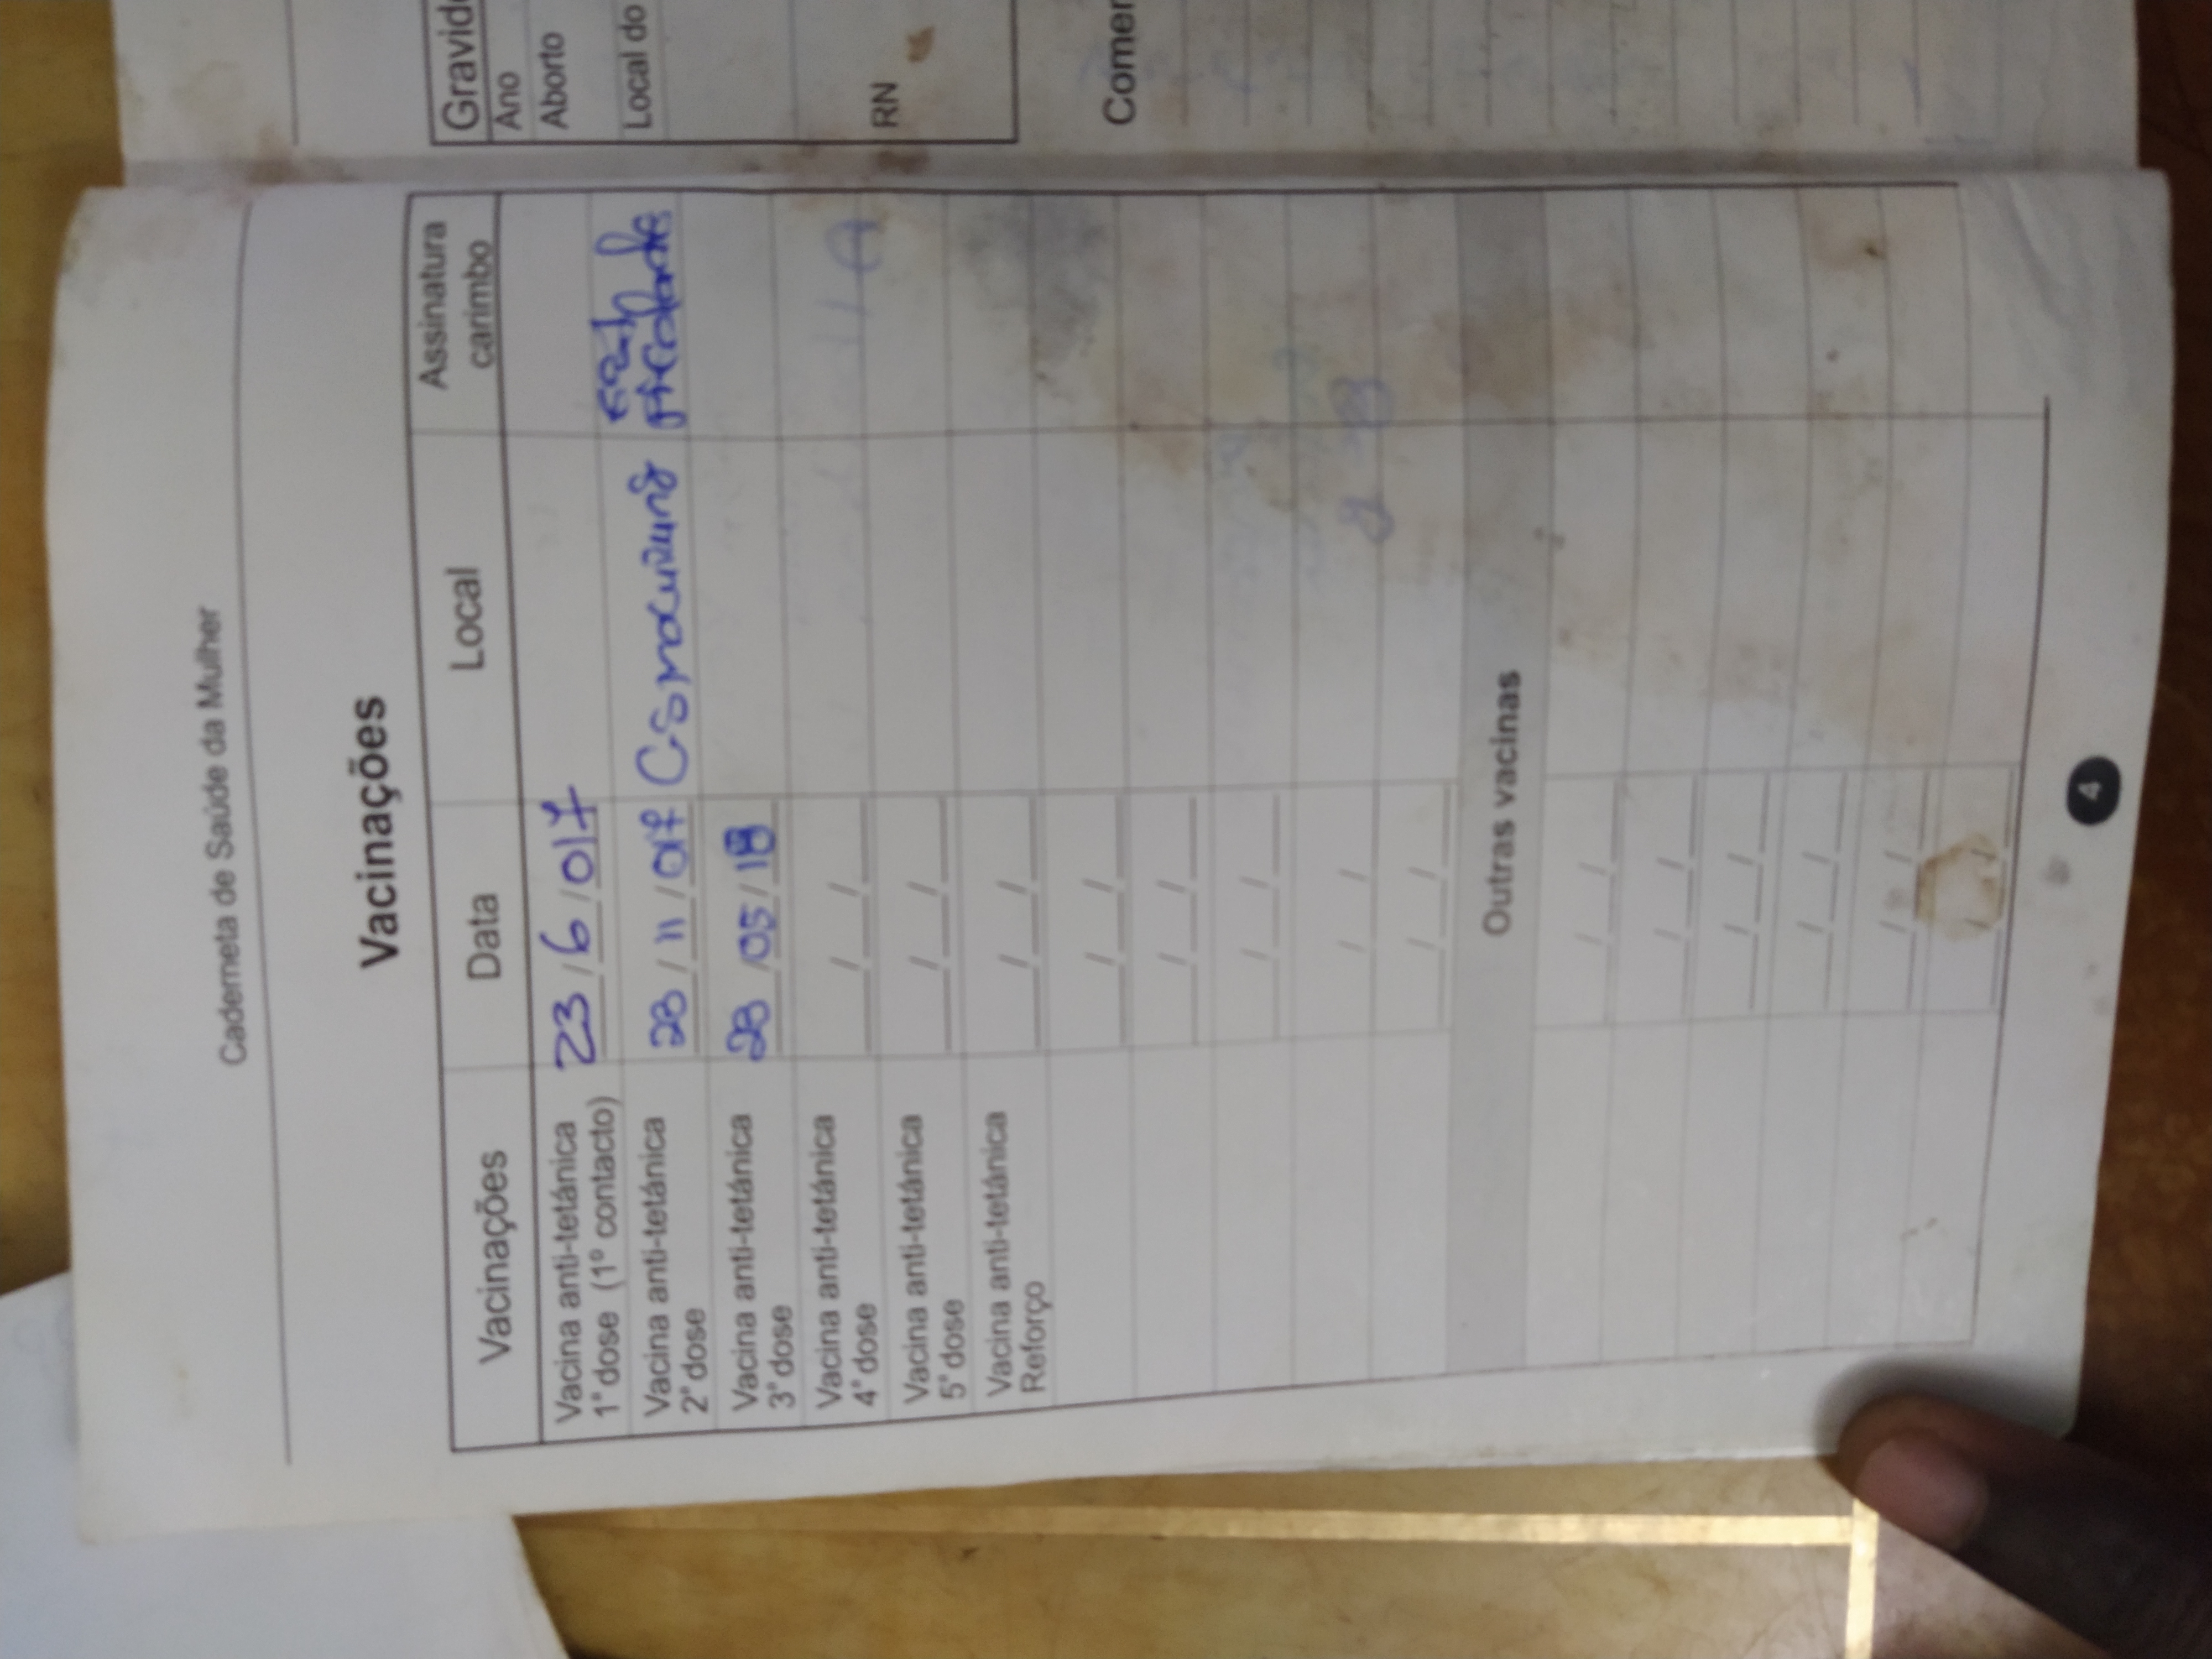 Caderneta de Saúde da Mulher
Vacinações
Vacinações Data Local Assinatura carimbo
Vacina anti-tetánica
1ª dose (1º contacto) 23/6/017
Vacina anti-tetánica
2ª dose 23/11/017 CS
Vacina anti-tetánica
3ª dose 23/05/18
Vacina anti-tetánica
4ª dose __/__/__
Vacina anti-tetánica
5ª dose __/__/__
Vacina anti-tetánica
Reforço __/__/__
__/__/__
__/__/__
__/__/__
__/__/__
__/__/__
Outras vacinas
__/__/__
__/__/__
__/__/__
__/__/__
__/__/__
__/__/__
4
Ano
Aborto
Local do
RN